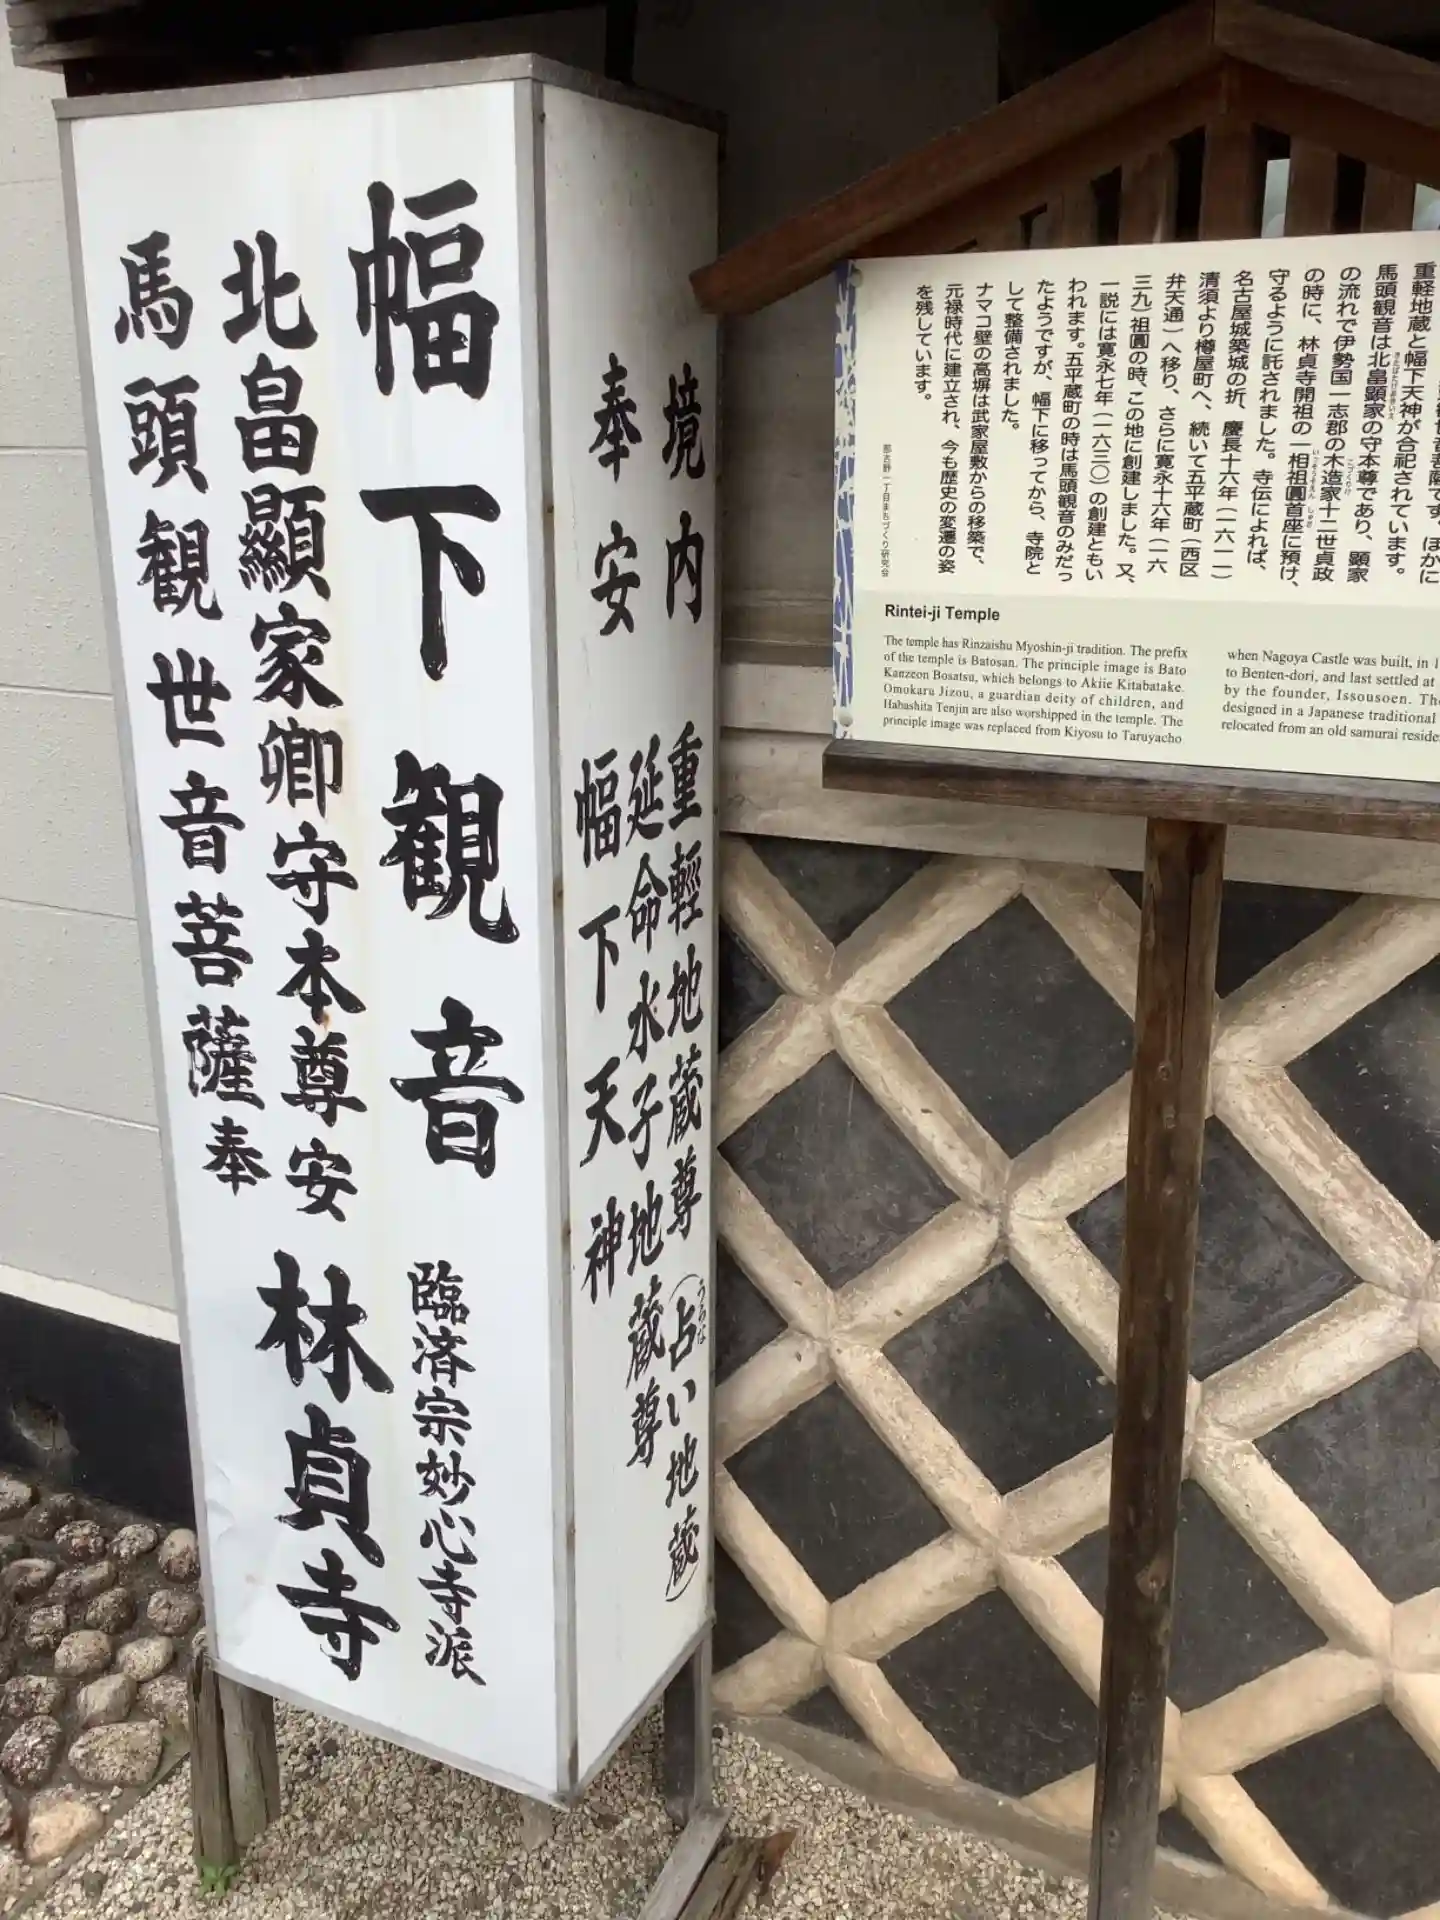 幅下観音
臨済宗妙心寺派
北畠顯家卿守本尊安
馬頭観世音菩薩奉
林貞寺
境内
奉安
重輕地蔵尊(占い地蔵)
うらな
延命水子地蔵尊
幅下天神
重軽地蔵と幅下天神が合祀されています。
馬頭観音は北畠顕家の守本尊であり、顕家
きたばたけあきいえ
の流れで伊勢国一志郡の木造家十二世貞政
こづくりけ
の時に、林貞寺開祖の一相祖圓首座に預け、
いっそうそえん しゅざ
守るように託されました。寺伝によれば、
名古屋城築城の折、慶長十六年(一六一一)
清須より樽屋町へ、続いて五平蔵町(西区
弁天通)へ移り、さらに寛永十六年(一六
三九)祖圓の時、この地に創建しました。又、
一説には寛永七年(一六三〇)の創建ともい
われます。五平蔵町の時は馬頭観音のみだっ
たようですが、幅下に移ってから、寺院と
して整備されました。
ナマコ壁の高塀は武家屋敷からの移築で、
元禄時代に建立され、今も歴史の変遷の姿
を残しています。
那古野一丁目まちづくり研究会
Rintei-ji Temple
The temple has Rinzaishu Myoshin-ji tradition. The prefix
of the temple is Batosan. The principle image is Bato
Kanzeon Bosatsu, which belongs to Akiie Kitabatake.
Omokaru Jizou, a guardian deity of children, and
Habashita Tenjin are also worshipped in the temple. The
principle image was replaced from Kiyosu to Taruyacho
when Nagoya Castle was built, in 1
to Benten-dori, and last settled at
by the founder, Issousoen. The
designed in a Japanese traditional
relocated from an old samurai reside